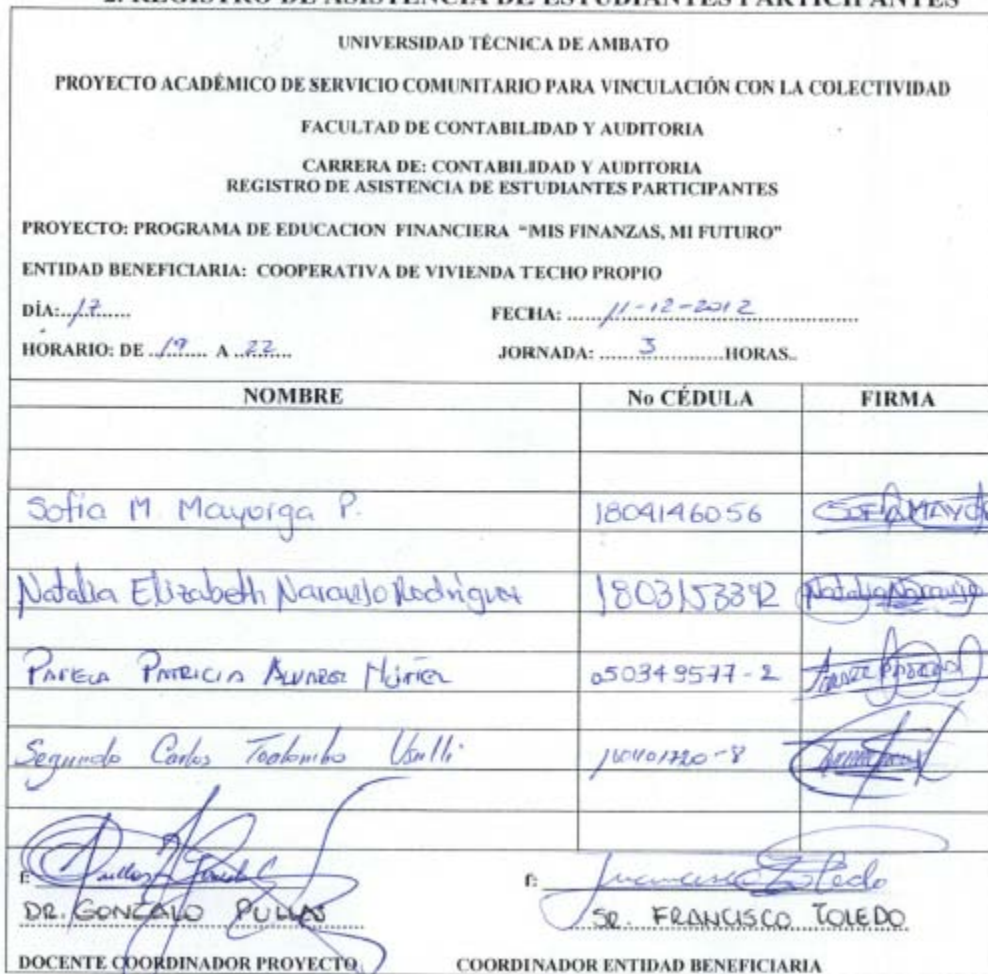 2. REGISTRO DE ASISTENCIA DE ESTUDIANTES PARTICIPANTES
UNIVERSIDAD TÉCNICA DE AMBATO
PROYECTO ACADÉMICO DE SERVICIO COMUNITARIO PARA VINCULACIÓN CON LA COLECTIVIDAD
FACULTAD DE CONTABILIDAD Y AUDITORIA
CARRERA DE: CONTABILIDAD Y AUDITORIA
REGISTRO DE ASISTENCIA DE ESTUDIANTES PARTICIPANTES
PROYECTO: PROGRAMA DE EDUCACION FINANCIERA "MIS FINANZAS, MI FUTURO"
ENTIDAD BENEFICIARIA: COOPERATIVA DE VIVIENDA TECHO PROPIO
DÍA: 17 FECHA: 11-12-2012
HORARIO: DE 19 A 22 JORNADA: 3 HORAS..
NOMBRE No CÉDULA FIRMA
Sofia M. Mayorga P. 1804146056 SOFIA MAYO
Natalia Elizabeth Naranjo Rodriguez 1803153392 Natalia Naranjo
PATRICIA ALVAREZ 050349577-2
Segundo Carlos Toalombo
f: f: Francisco Toledo
DR. GONZALO PULLAS SR. FRANCISCO TOLEDO
DOCENTE COORDINADOR PROYECTO COORDINADOR ENTIDAD BENEFICIARIA